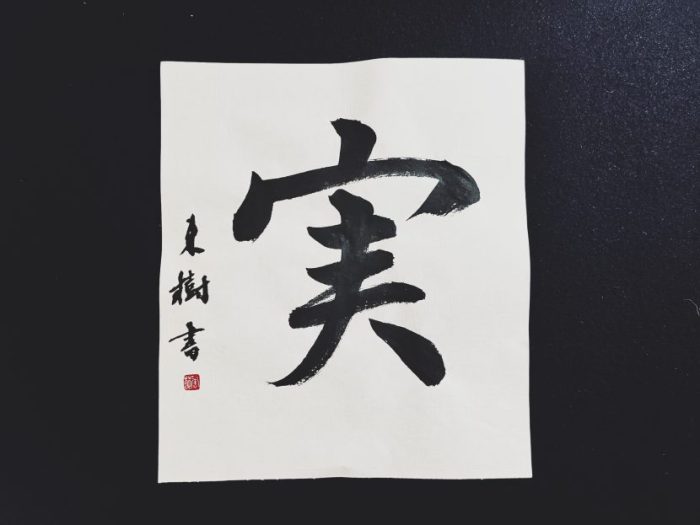 実
東樹書